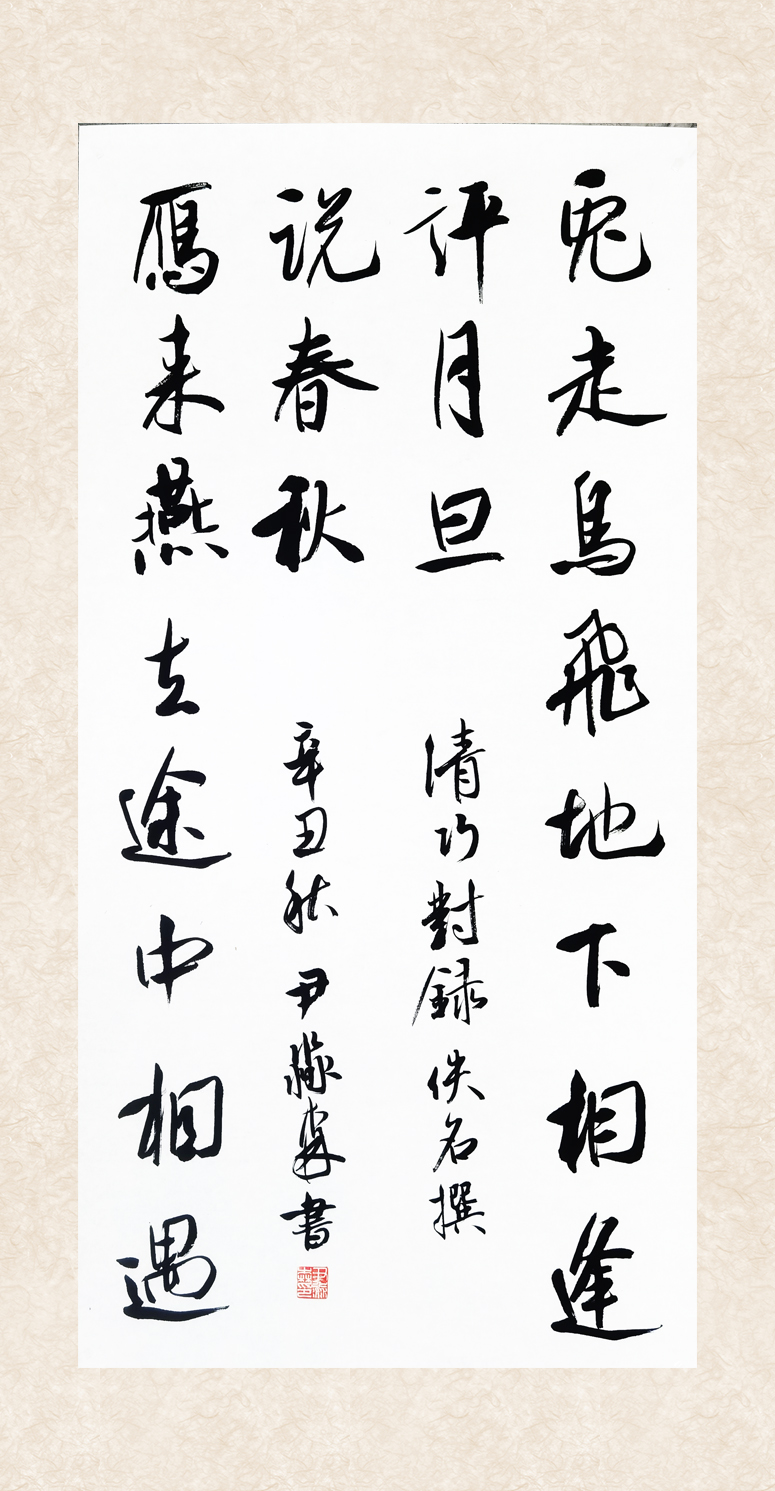 兔走烏飛地下相逢
評月旦
清巧對録 佚名撰
鴈来燕去途中相遇
说春秋
辛丑秋 尹 書